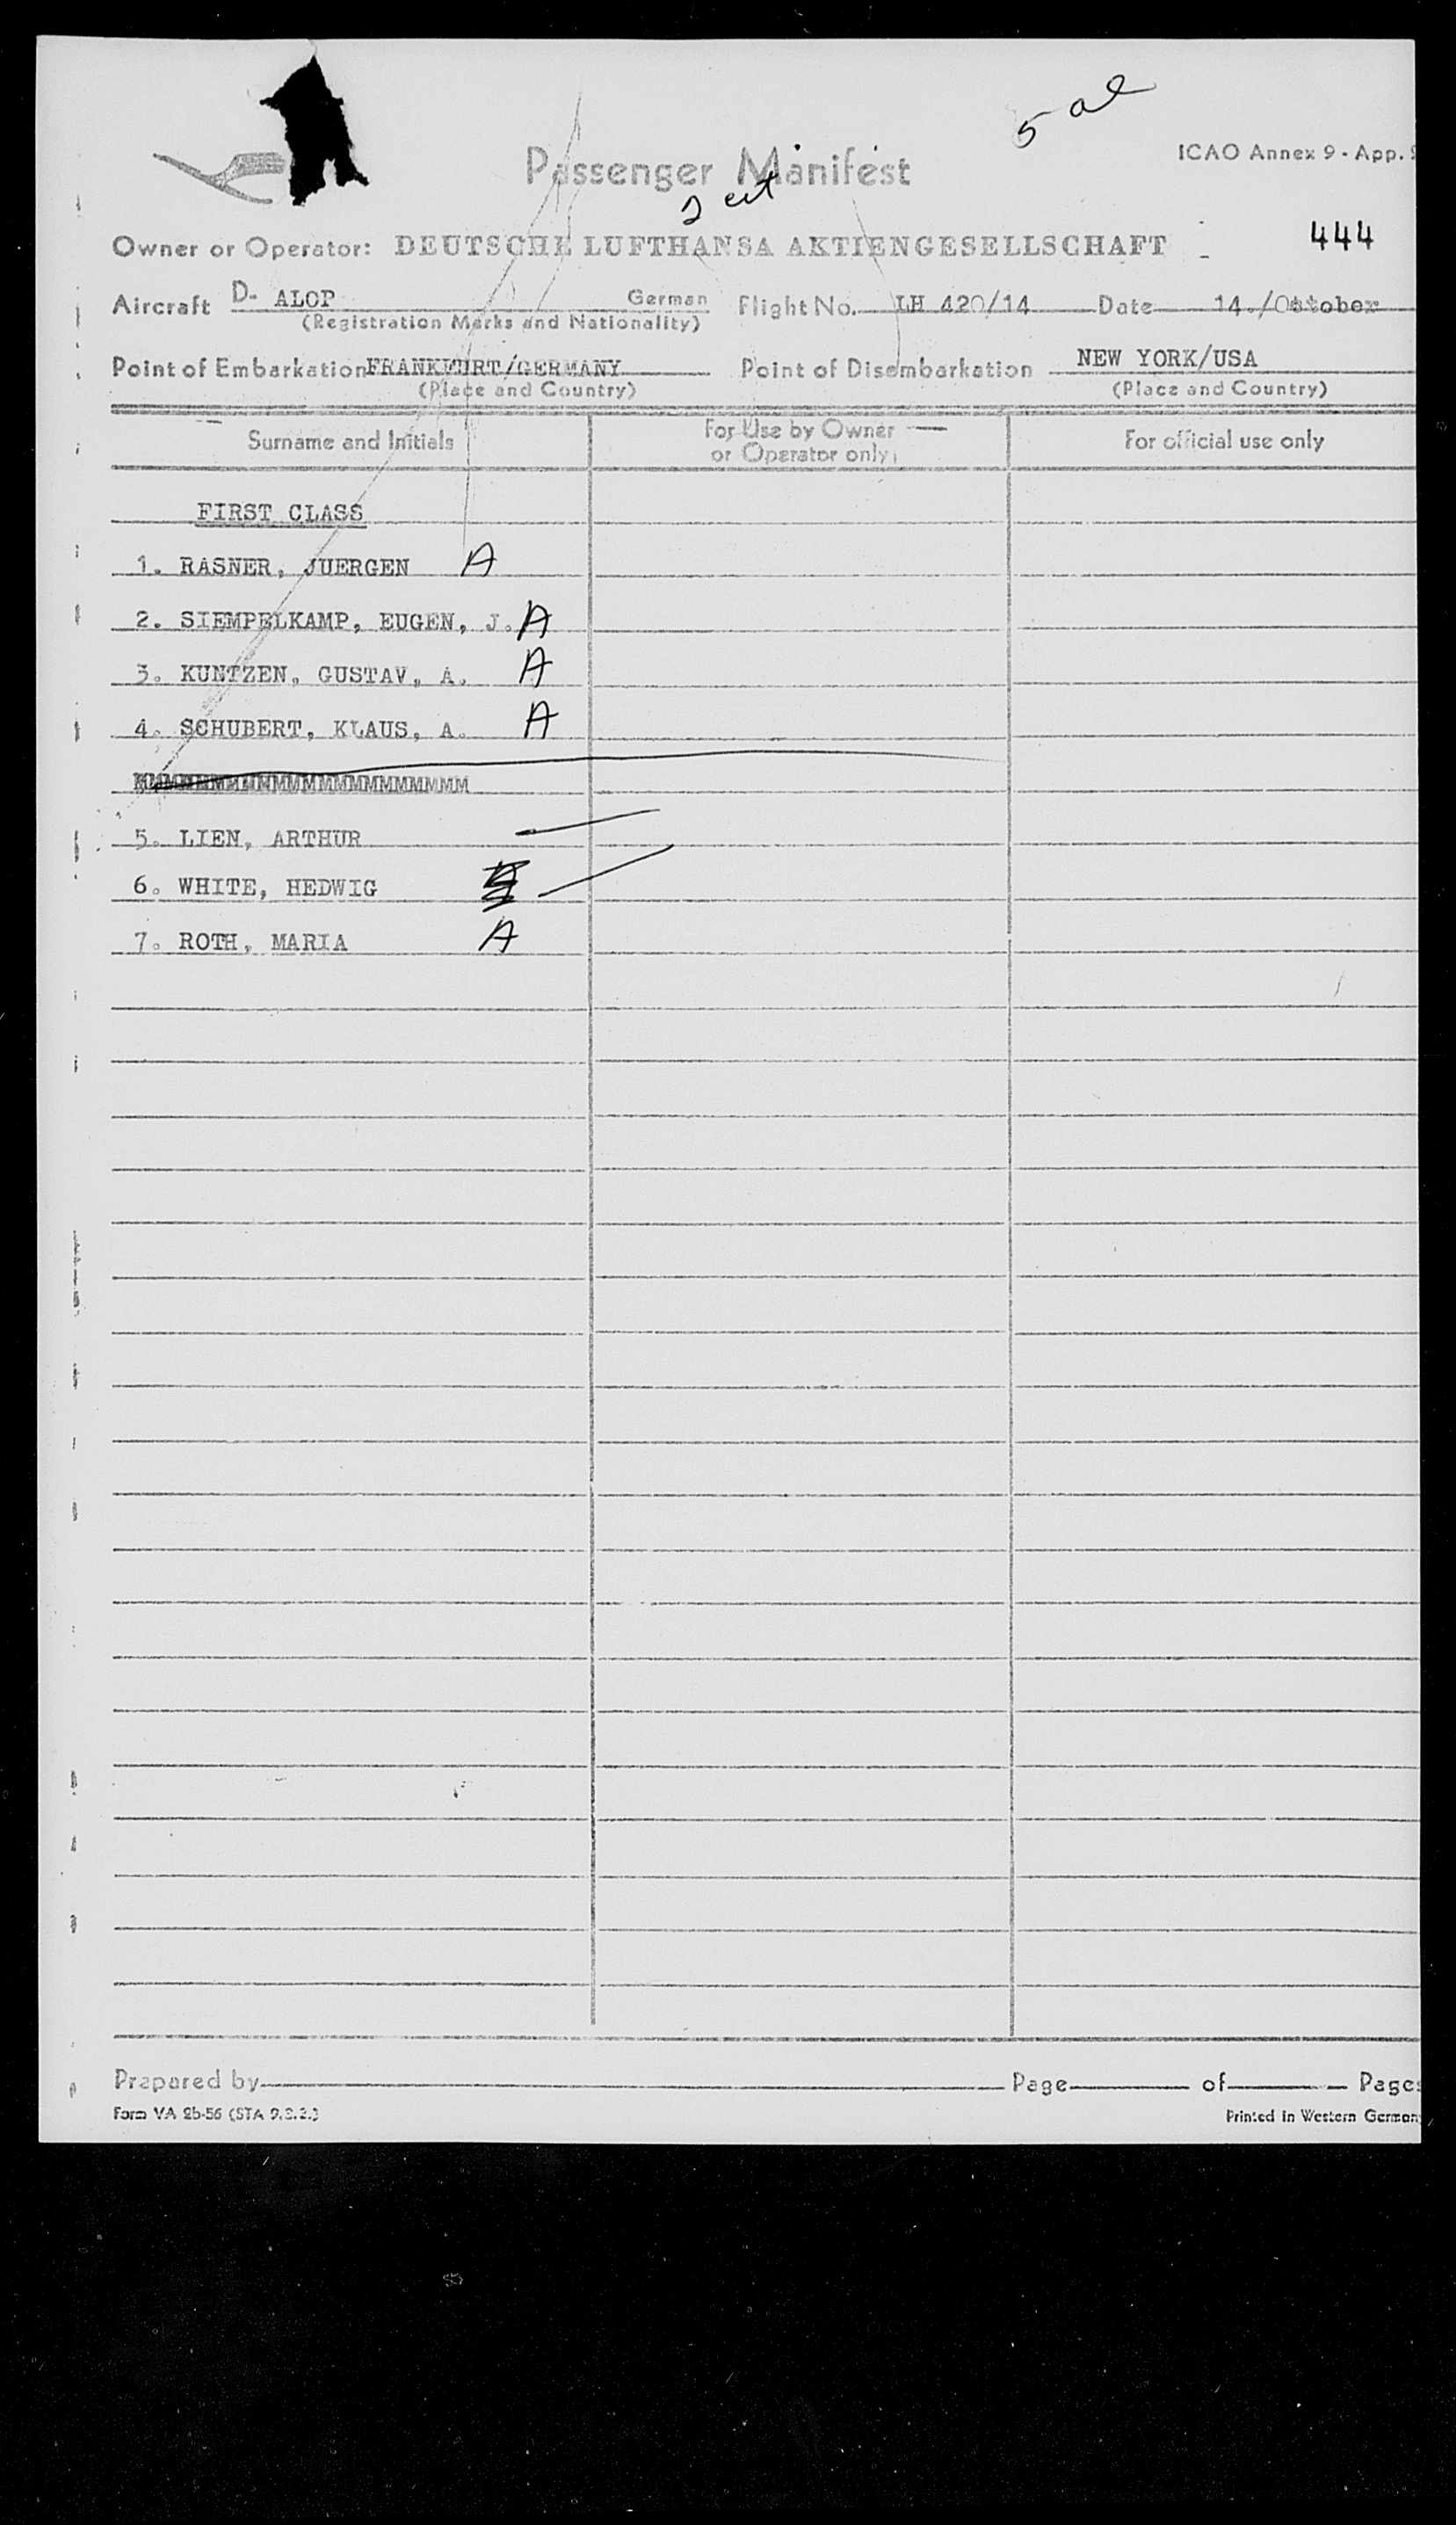 5 al
Passenger Manifest
ICAO Annex 9 - App.
2 cit
Owner or Operator: DEUTSCHE LUFTHANSA AKTIENGESELLSCHAFT
444
Aircraft D- ALOP German Flight No. LH 420/14 Date 14./October
(Registration Marks and Nationality)
Point of Embarkation FRANKFURT/GERMANY Point of Disembarkation NEW YORK/USA
(Place and Country) (Place and Country)
Surname and Initials For Use by Owner or Operator only For official use only
FIRST CLASS
1. RASNER, JUERGEN A
2. SIEMPELKAMP, EUGEN, J. A
3. KUNTZEN, GUSTAV, A. A
4. SCHUBERT, KLAUS, A. A
5. LIEN, ARTHUR
6. WHITE, HEDWIG
7. ROTH, MARIA A
Prepared by Page of Pages
Form VA 2b-56 (STA 9.3.2.)
Printed in Western German